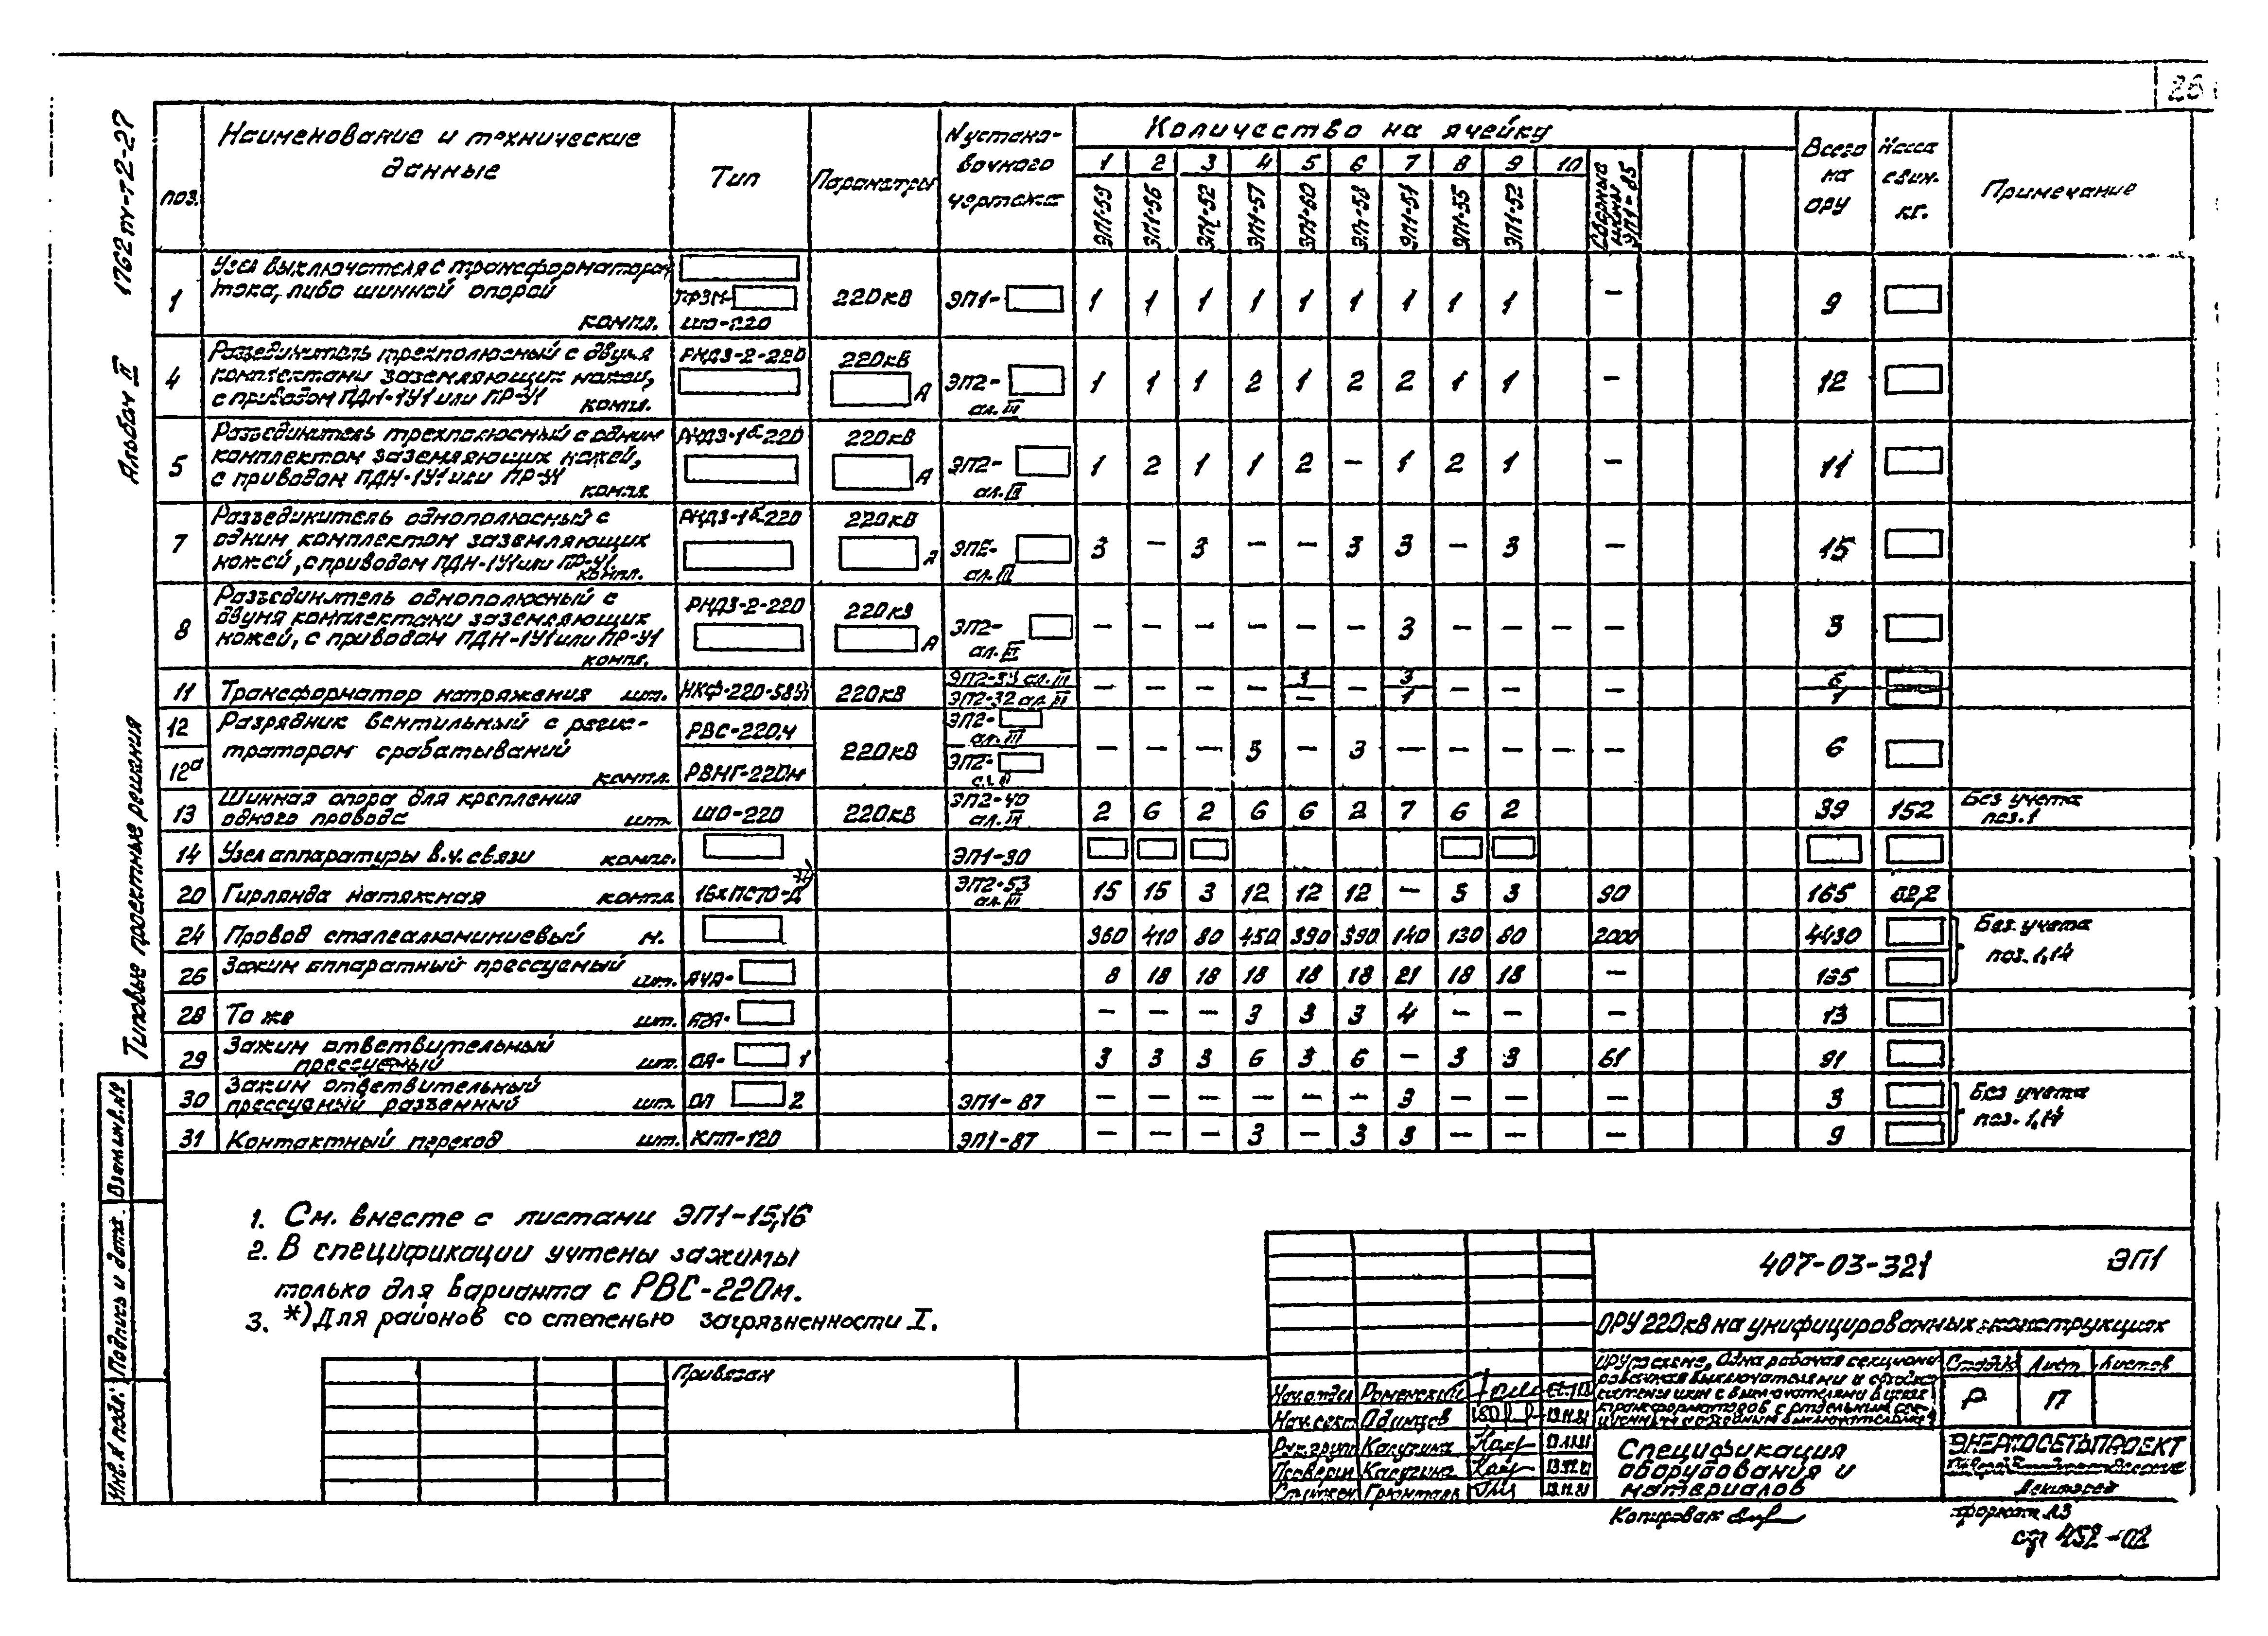 26
1762тм-т2-27
Альбом II
Типовые проектные решения
Взам.инв.№
Подпись и дата
Инв.№ подл.
поз. Наименование и технические данные Тип Параметры N установочного чертежа Количество на ячейку Всего на ОРУ Масса един. кг. Примечание
1 2 3 4 5 6 7 8 9 10
ЭП1-59 ЭП1-56 ЭП1-52 ЭП1-57 ЭП1-60 ЭП1-58 ЭП1-54 ЭП1-55 ЭП1-52 Сборные шины ЭП1-85
1 Узел выключателя с трансформатором
тока, либо шинной опорой
компл. ТФЗМ- ШО-220 220кВ ЭП1- 1 1 1 1 1 1 1 1 1 — 9
4 Разъединитель трехполюсный с двумя
комплектами заземляющих ножей,
с приводом ПДН-1У1 или ПР-У1 компл. РНДЗ-2-220 220кВ А ЭП2- ал.III 1 1 1 2 1 2 2 1 1 — 12
5 Разъединитель трехполюсный с одним
комплектом заземляющих ножей,
с приводом ПДН-1У1 или ПР-У1 компл. РНДЗ-1б-220 220кВ А ЭП2- ал.III 1 2 1 1 2 — 1 2 1 — 11
7 Разъединитель однополюсный с
одним комплектом заземляющих
ножей, с приводом ПДН-1У1 или ПР-У1 компл. РНДЗ-1б-220 220кВ А ЭП2- ал.III 3 — 3 — — 3 3 — 3 — 15
8 Разъединитель однополюсный с
двумя комплектами заземляющих
ножей, с приводом ПДН-1У1 или ПР-У1
компл. РНДЗ-2-220 220кВ А ЭП2- ал.III — — — — — — 3 — — — — 3
11 Трансформатор напряжения шт. НКФ-220-58У1 220кВ ЭП2-33 ал.III ЭП2-32 ал.III — — — — 3 — — 3 1 — — — 6 1
12 Разрядник вентильный с регис-
тратором срабатываний РВС-220м 220кВ ЭП2- ал.III — — — 3 — 3 — — — — — 6
12а компл. РВМГ-220м ЭП2-
13 Шинная опора для крепления
одного провода шт. ШО-220 220кВ ЭП2-40 ал.III 2 6 2 6 6 2 7 6 2 39 152 Без учета поз.1
14 Узел аппаратуры в.ч. связи компл. ЭП1-30
20 Гирлянда натяжная компл. 16хПС70-Д ЭП2-53 ал.III 15 15 3 12 12 12 — 3 3 90 165 62,2
24 Провод сталеалюминиевый м. 360 410 80 450 390 390 140 130 80 2000 4430 Без учета
26 Зажим аппаратный прессуемый шт. А4А- 8 18 18 18 18 18 21 18 18 — 155 поз.1,14
28 То же шт. А2А- — — — 3 3 3 4 — — — 13
29 Зажим ответвительный
прессуемый шт. ОА- 1 3 3 3 6 3 6 — 3 3 61 91
30 Зажим ответвительный
прессуемый разъемный шт. ОП 2 ЭП1-87 — — — — — — 3 — — — 3 Без учета
31 Контактный переход шт. КПП-120 ЭП1-87 — — — 3 — 3 3 — — — 9 поз.1,14
1. См. вместе с листами ЭП1-15,16
2. В спецификации учтены зажимы
только для варианта с РВС-220м.
3. *) Для районов со степенью загрязненности I.
Привязан
407-03-321 ЭП1
ОРУ 220кВ на унифицированных конструкциях
Стадия Лист Листов
Р 17
Нач.отдел Роменский
Нач.сект. Одинцов 19.11.81
Рук.групп Калугина 13.11.81
Проверил Калугина 13.11.81
Грюнталь 13.11.81
Спецификация
оборудования и
материалов
ЭНЕРГОСЕТЬПРОЕКТ
Ленинград
Копировал
формат А3
сф 452-02